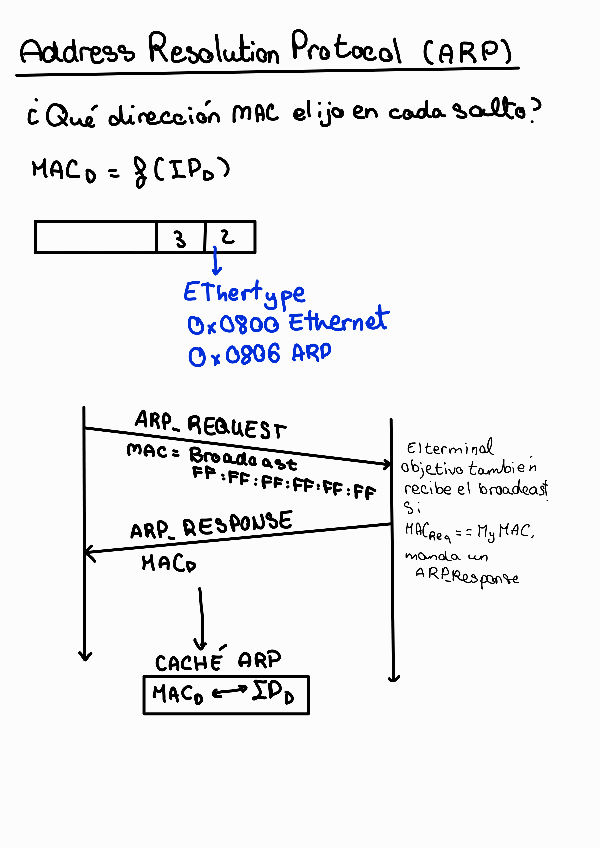 Address Resolution Protocol (ARP)
¿Qué dirección MAC elijo en cada salto?
MAC_D = f(IP_D)
3 2
EThertype
0x0800 Ethernet
0x0806 ARP
ARP_REQUEST
MAC = Broadcast
FF:FF:FF:FF:FF:FF
El terminal
objetivo también
recibe el broadcast
Si
MAC_Req == My MAC,
manda un
ARP_Response
ARP_RESPONSE
MAC_D
CACHÉ ARP
MAC_D ⟷ IP_D